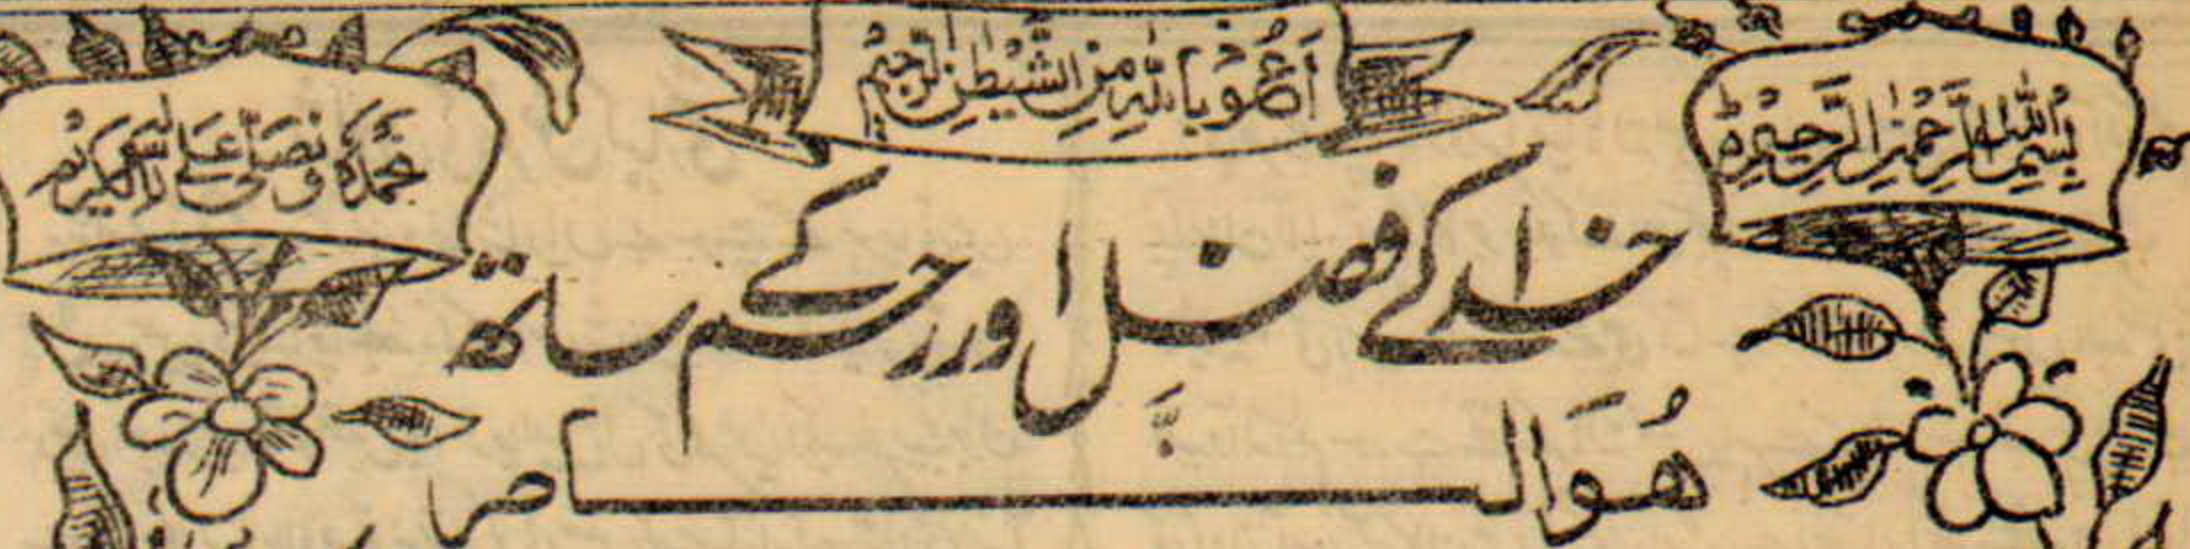 بِسْمِ اللّٰهِ الرَّحْمٰنِ الرَّحِيْمِ
اَعُوْذُ بِاللّٰهِ مِنَ الشَّيْطٰنِ الرَّجِيْمِ
نَحْمَدُهٗ وَنُصَلِّيْ عَلٰى رَسُوْلِهِ الْكَرِيْمِ
خدا کے فضل اور رحم کے ساتھ
هُوَ النَّاصِرُ